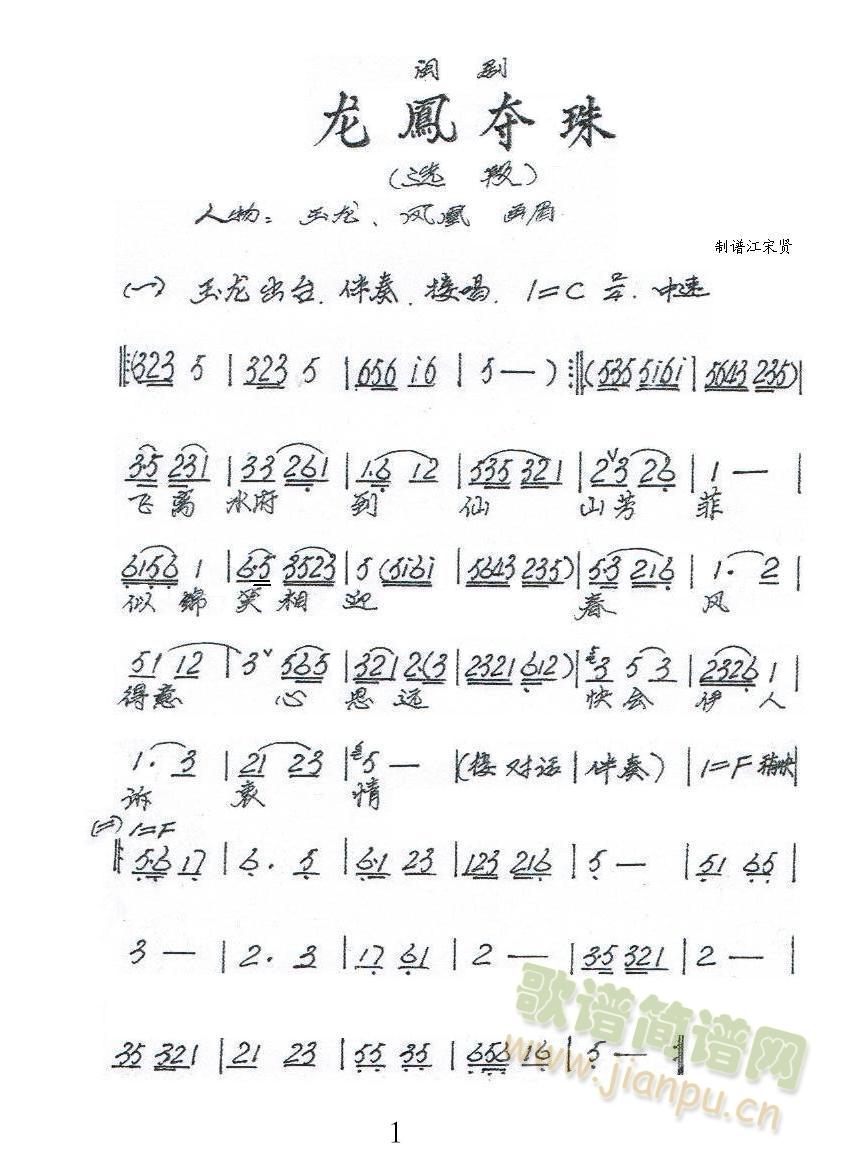 闽剧
龙鳳夺珠
(选段)
人物: 玉龙、凤凰 画眉
制谱江宋贤
(一) 玉龙出台.伴奏.接唱, 1=C 2/4. 中速
‖:(323 5 | 323 5 | 656 i6 | 5 — ) :‖(535 5i6i | 5643 235)|
3·5 231 | 33 261 | 1·6 12 | 535 321 | 2ˇ3 26 | 1 — |
飞离 水府 到 仙 山芳 菲
6156 1 | 6·5 3523 | 5 (5i6i | 5643 235) | 5·3 216 | 1· 2 |
似锦 笑相迎 春 风
51 12 | 3ˇ 565 | 321 2·(3 | 2321 612) | 3 5 3 | 2326 1 |
得意 心 思 远 快会 伊人
1· 3 | 21 23 | 5 — |(接对话 | 伴奏) | 1=F 稍快|
诉 衷 情
(二) 1=F
‖: 5·6 17 | 6· 5 | 6·1 23 | 123 216 | 5 — | 51 65 |
3 — | 2· 3 | 17 61 | 2 — | 3·5 321 | 2 — |
35 321 | 21 23 | 55 35 | 656 16 | 5 — :‖
歌谱简谱网
www.jianpu.cn
1